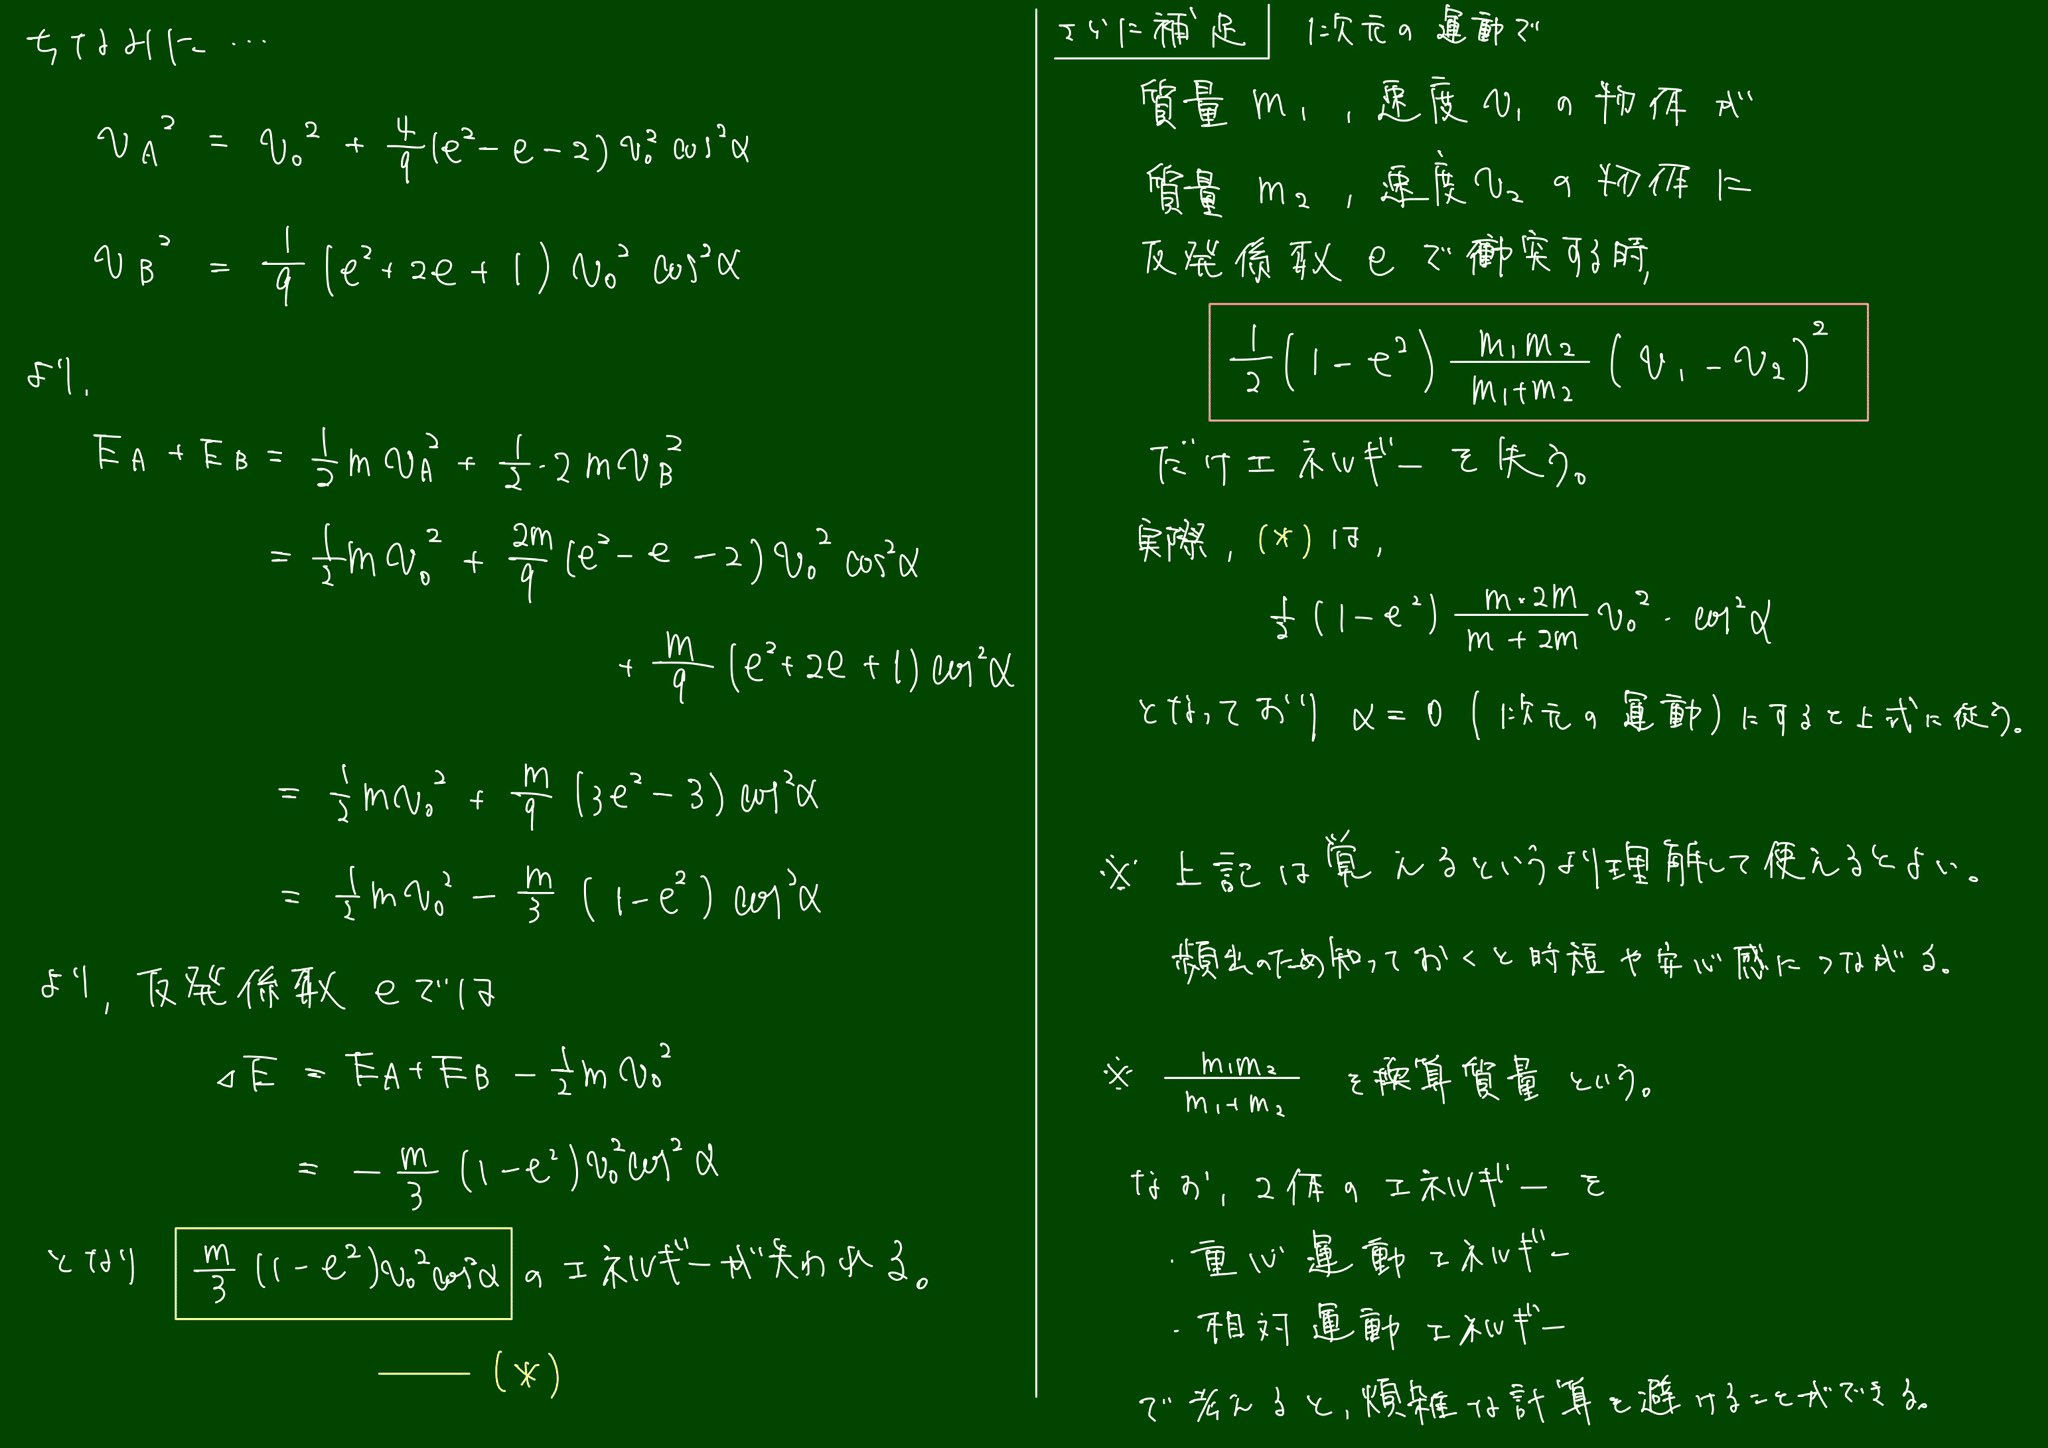 ちなみに…
v_A² = v₀² + 4/9 (e² - e - 2) v₀² cos²α
v_B² = 1/9 (e² + 2e + 1) v₀² cos²α
より,
E_A + E_B = 1/2 m v_A² + 1/2・2m v_B²
= 1/2 m v₀² + 2m/9 (e² - e - 2) v₀² cos²α
+ m/9 (e² + 2e + 1) cos²α
= 1/2 m v₀² + m/9 (3e² - 3) cos²α
= 1/2 m v₀² - m/3 (1 - e²) cos²α
より, 反発係数 e では
⊿E = E_A + E_B - 1/2 m v₀²
= - m/3 (1 - e²) v₀² cos²α
となり m/3 (1 - e²) v₀² cos²α のエネルギーが失われる。
—— (*)
さらに補足 1次元の運動で
質量 m₁, 速度 v₁ の物体が
質量 m₂, 速度 v₂ の物体に
反発係数 e で衝突する時,
1/2 (1 - e²) m₁m₂/(m₁+m₂) (v₁ - v₂)²
だけエネルギーを失う。
実際, (*) は,
1/2 (1 - e²) m・2m/(m + 2m) v₀²・cos²α
となっており α = 0 (1次元の運動) にすると上式に従う。
※ 上記は覚えるというより理解して使えるとよい。
頻出のため知っておくと時短や安心感につながる。
※ m₁m₂/(m₁+m₂) を換算質量という。
なお, 2体のエネルギーを
・重心運動エネルギー
・相対運動エネルギー
で考えると, 煩雑な計算を避けることができる。